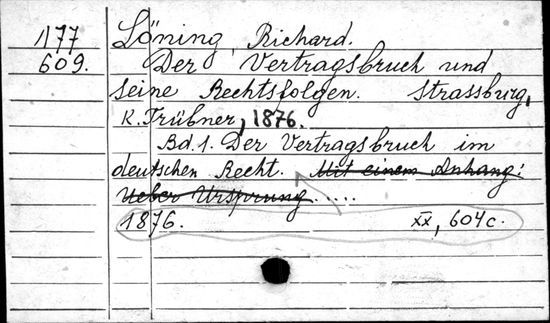 1177
609.
Löning, Richard.
Der Vertragsbruch und
seine Rechtsfolgen. Strassburg,
K. Trübner, 1876.
Bd. 1. Der Vertragsbruch im
deutschen Recht. Mit einem Anhang:
Ueber Ursprung .....
1876. XX, 604 c.